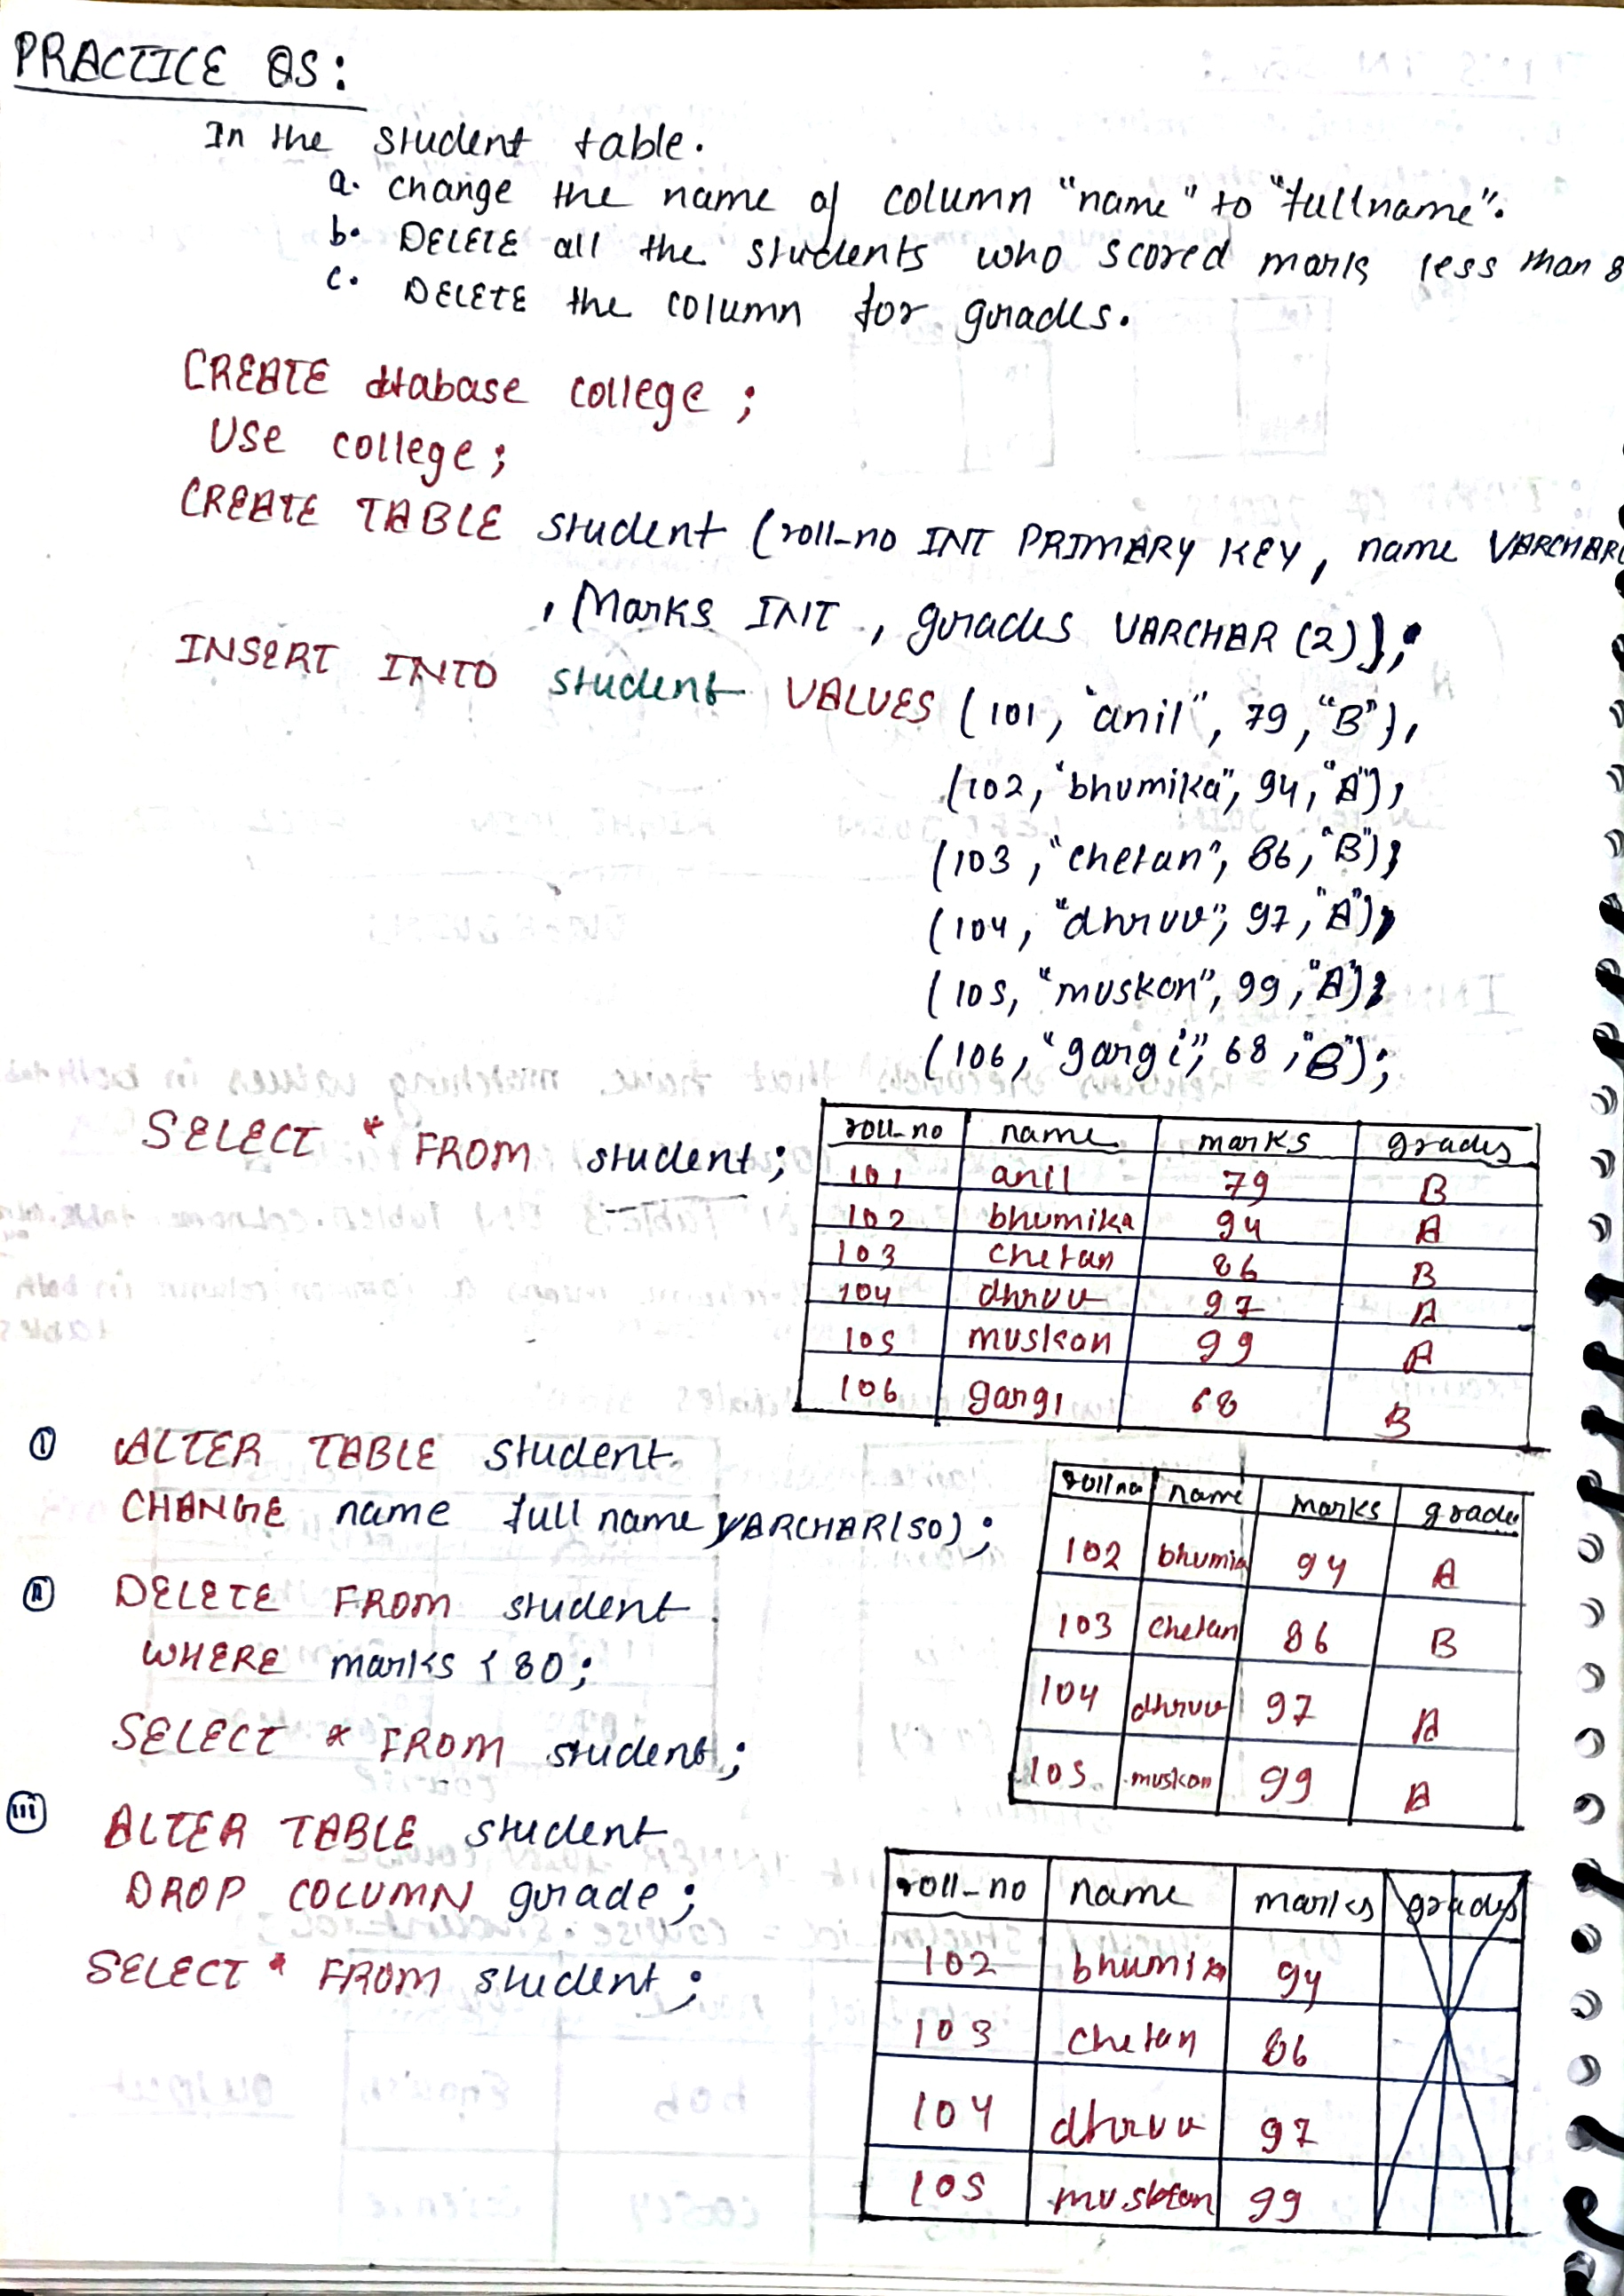 PRACTICE QS:
In the student table.
a. change the name of column "name" to "fullname".
b. DELETE all the students who scored marks less than 8
c. DELETE the column for grades.
CREATE database college ;
Use college ;
CREATE TABLE student (roll-no INT PRIMARY KEY, name VARCHAR(
, Marks INT , grades VARCHAR (2));
INSERT INTO student VALUES (101, "anil", 79, "B"),
(102, "bhumika", 94, "A"),
(103, "chetan", 86, "B"),
(104, "dhruv", 97, "A"),
(105, "muskan", 99, "A"),
(106, "gargi", 68, "B");
SELECT * FROM student;
roll-no name marks grades
101 anil 79 B
102 bhumika 94 A
103 chetan 86 B
104 dhruv 97 A
105 muskan 99 A
106 gargi 68 B
(i) ALTER TABLE student
CHANGE name full name VARCHAR(50);
roll no name marks grade
102 bhumi 94 A
103 chetan 86 B
104 dhruv 97 A
105 muskan 99 A
(ii) DELETE FROM student
WHERE marks < 80;
SELECT * FROM student;
(iii) ALTER TABLE student
DROP COLUMN grade;
SELECT * FROM student;
roll-no name marks grades
102 bhumika 94
103 chetan 86
104 dhruv 97
105 muskan 99